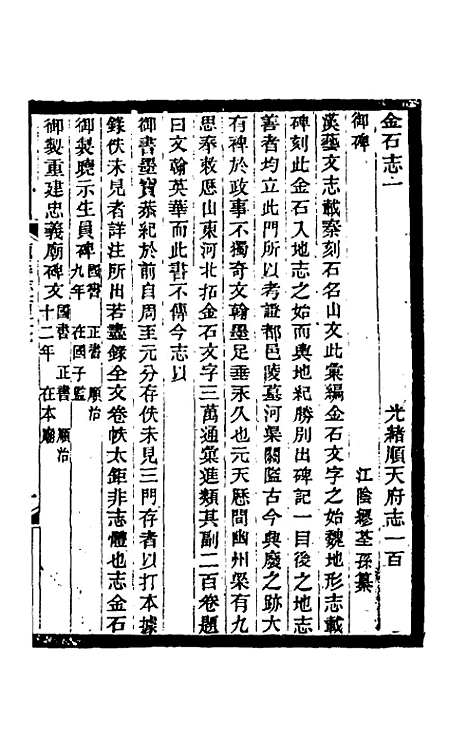 金石志一　光緒順天府志一百
御碑　江陰繆荃孫纂
漢藝文志載秦刻石名山文此彙編金石文字之始魏地形志載
碑刻此金石入地志之始而輿地紀勝別出碑記一目後之地志
善者均立此門所以考證都邑陵墓河渠關隘古今興廢之跡大
有碑於政事不獨奇文翰墨足垂永久也元天曆間幽州梁有九
思奉敕歷山東河北拓金石文字三萬通彙進類其副二百卷題
曰文翰英華而此書不傳今志以
御書墨寶恭紀於前自周至元分存佚未見三門存者以打本據
錄佚未見者詳注所出若盡錄全文卷帙太鉅非志體也志金石
御製曉示生員碑國書　正書　順治九年　在國子監
御製重建忠義廟碑文國書　正書　順治十二年　在本廟